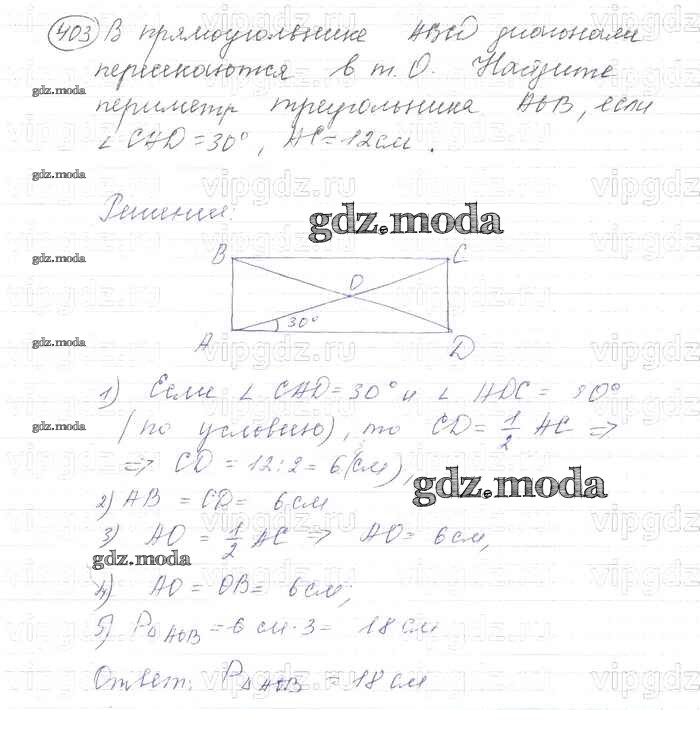 403 В прямоугольнике ABCD диагонали
пересекаются в т. О. Найдите
gdz.moda
периметр треугольника AOB, если
∠ CAD = 30°, AC = 12 см.
gdz.moda
Решение:
gdz.moda
B C
gdz.moda
O
30°
A D
gdz.moda
1) Если ∠ CAD = 30° и ∠ ADC = 90°
(по условию), то CD = 1/2 AC ⇒
gdz.moda
⇒ CD = 12 : 2 = 6 (см),
gdz.moda
2) AB = CD = 6 см
3) AO = 1/2 AC ⇒ AO = 6 см,
gdz.moda
4) AO = OB = 6 см;
5) P△AOB = 6 см · 3 = 18 см
Ответ: P△AOB = 18 см
vipgdz.ru